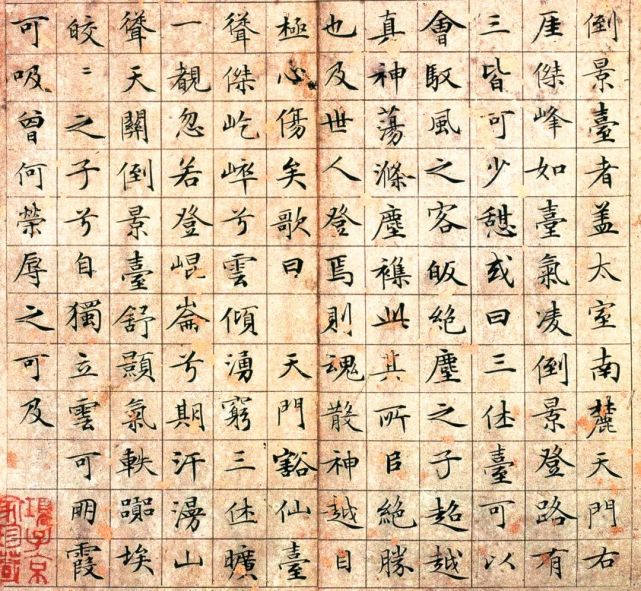 倒景臺者盖太室南麓天門右
厓傑峰如臺氣凌倒景登路有
三皆可少憩或曰三休臺可以
會馭風之客皈絕塵之子超越
真神蕩滌塵襍此其所㠯絕勝
也及世人登焉則魂散神越目
極心傷矣歌曰 天門豁仙臺
聳傑屹崒兮雲傾湧窮三休曠
一覩忽若登崐崙兮期汗漫山
聳天關倒景臺舒顥氣軼囂埃
皎〻之子兮自獨立雲可朋霞
可吸曾何榮辱之可及
項子京
家珍藏